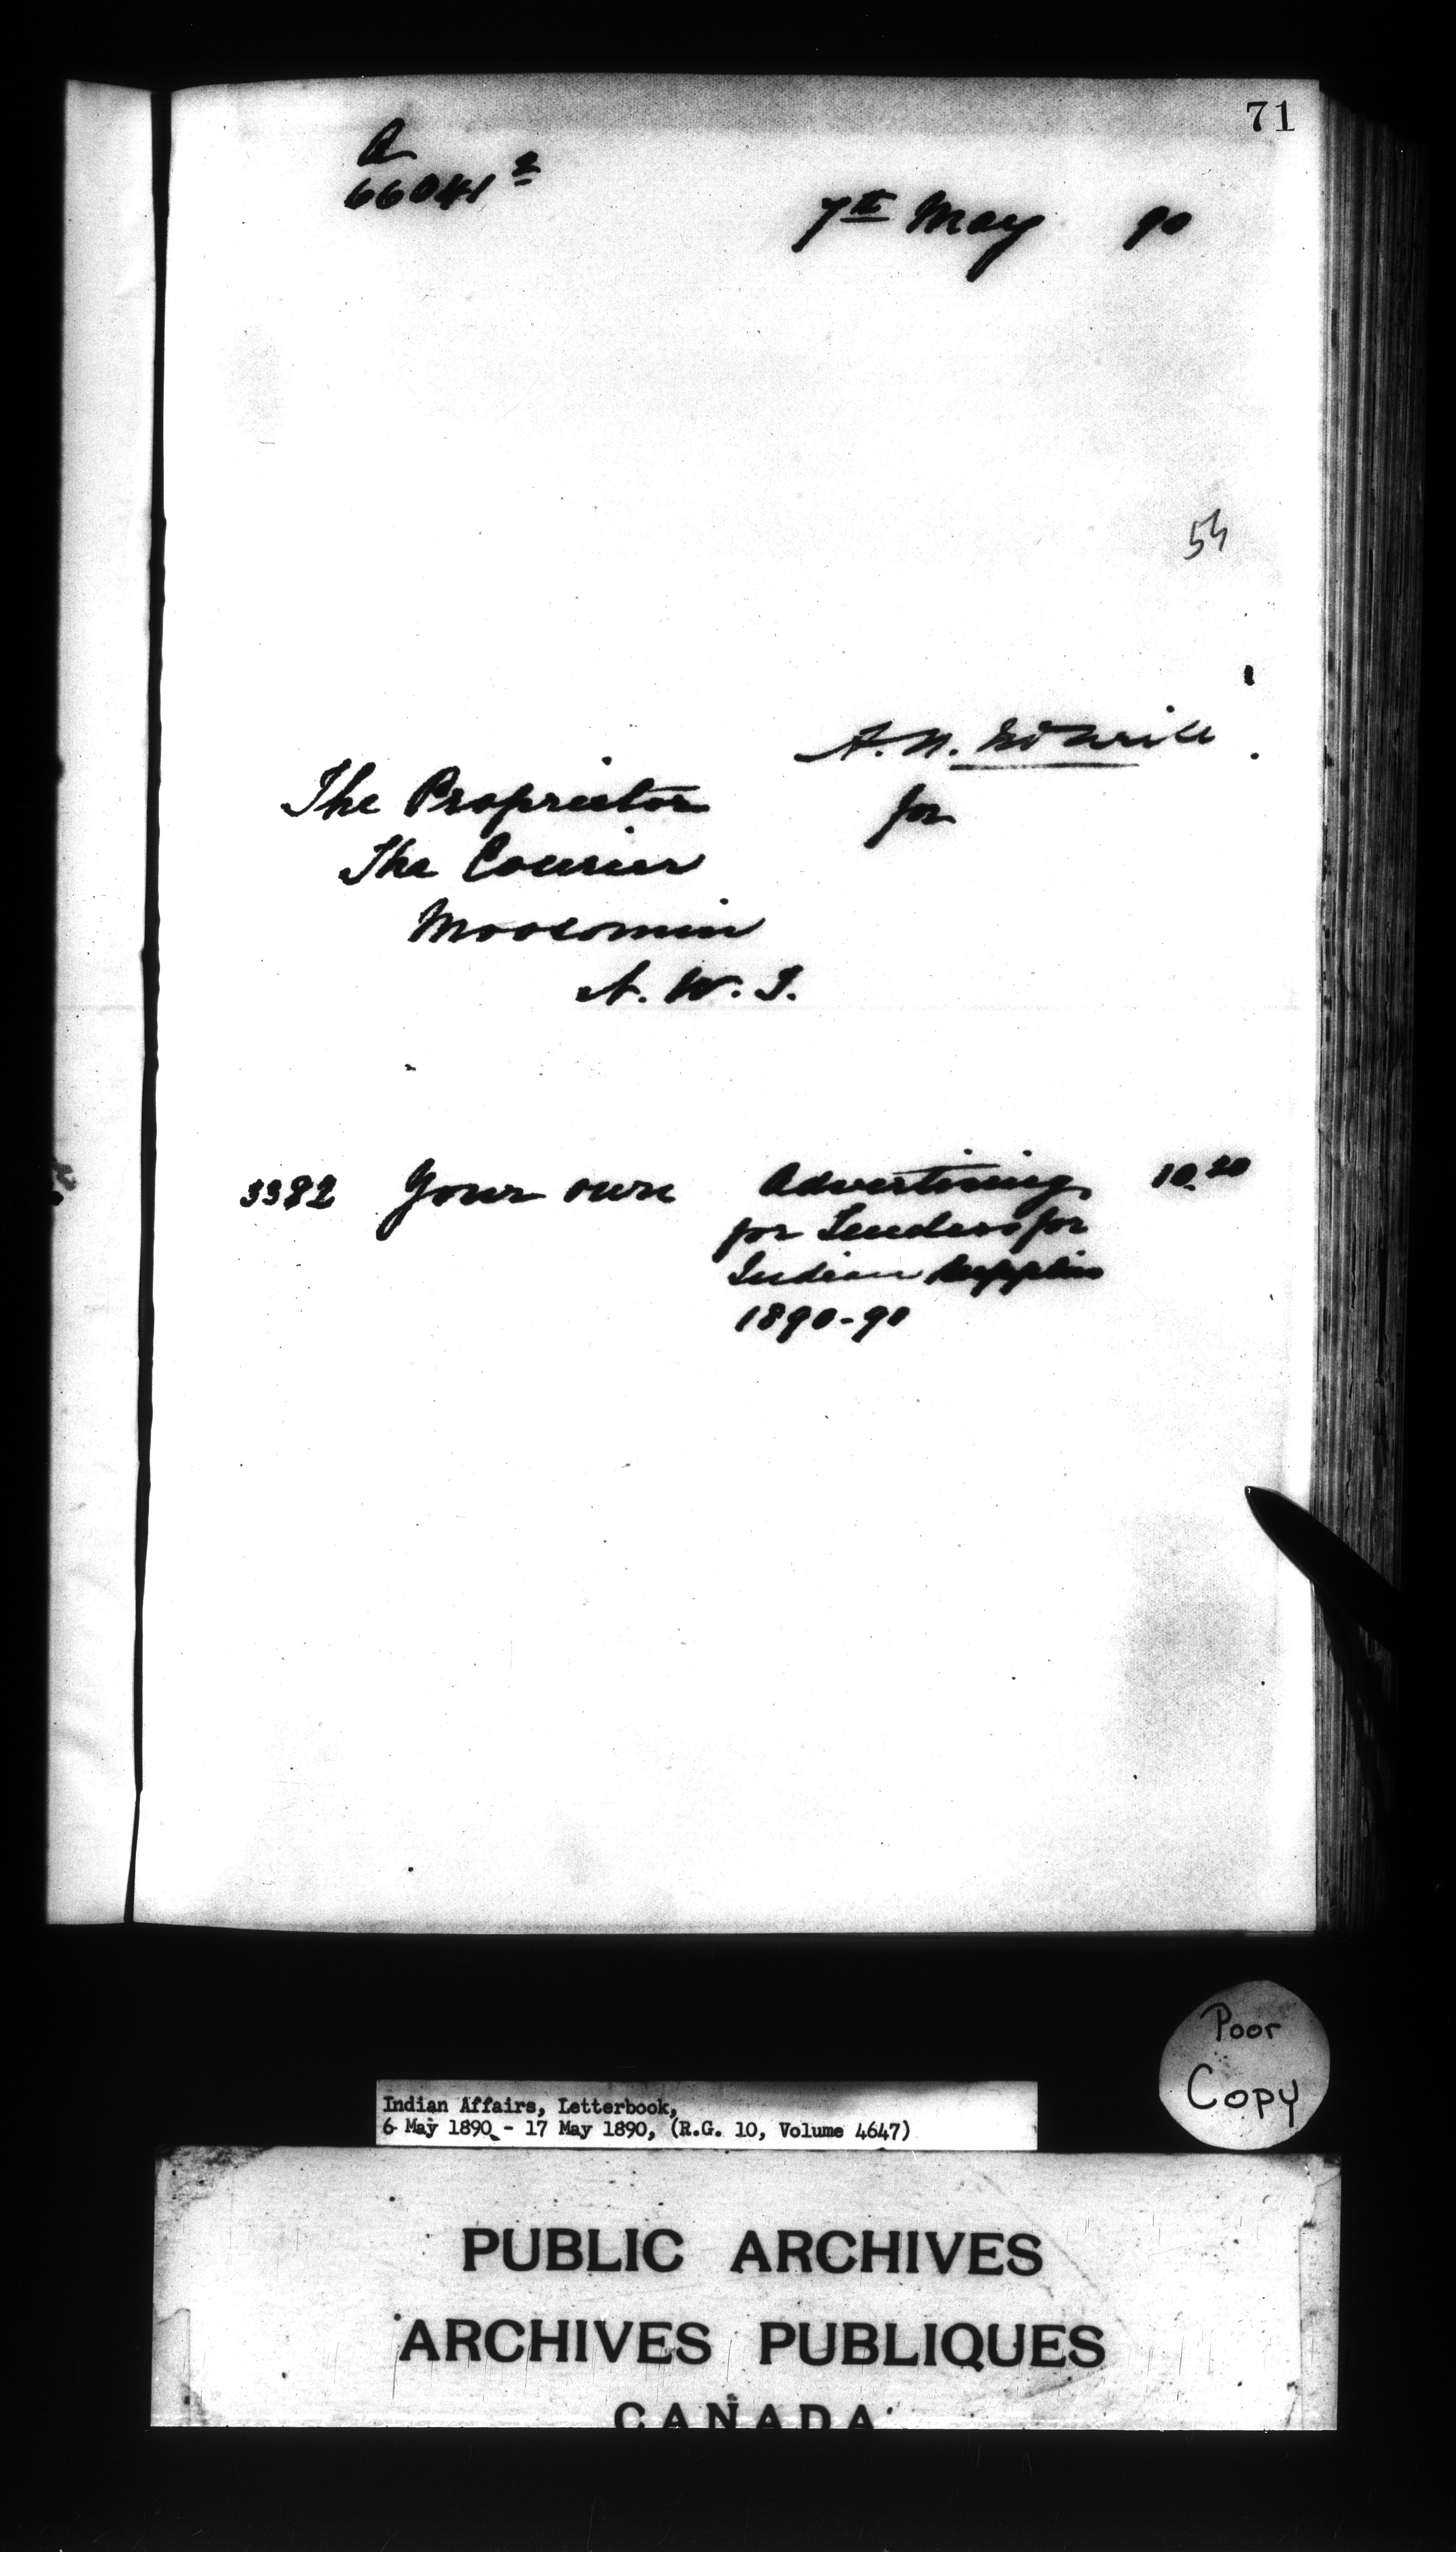 71
A
66041 2
7th May 90
54
A. N. McNeill
for
The Proprietor
The Courier
Moosomin
N. W. T.
3382 Your own Advertising 10.20
for Tenders for
Indian Supplies
1890-90
Poor
Copy
Indian Affairs, Letterbook,
6 May 1890 - 17 May 1890, (R.G. 10, Volume 4647)
PUBLIC ARCHIVES
ARCHIVES PUBLIQUES
CANADA